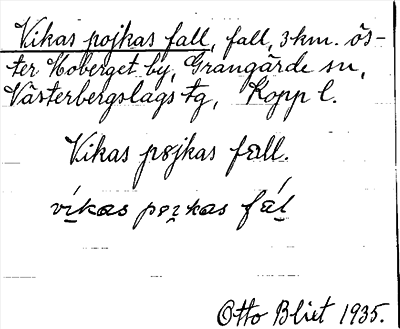 Vikas pojkas fall, fall, 3 km. ös-
ter Hoberget by, Grangärde sn,
Västerbergslags tg, Kopp l.
Vikas pøjkas fall.
Otto Blixt 1935.